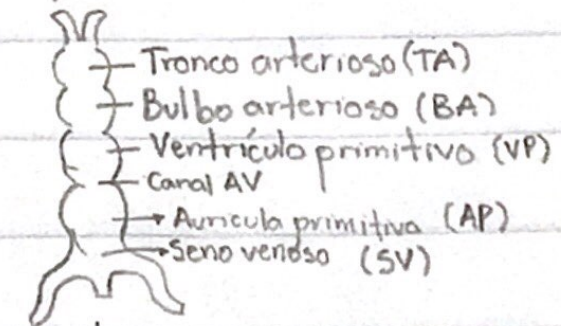 Tronco arterioso (TA)
Bulbo arterioso (BA)
Ventrículo primitivo (VP)
Canal AV
Auricula primitiva (AP)
Seno venoso (SV)